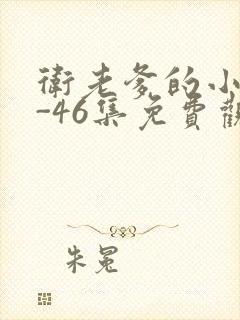 衛老爹的小
-46集免費觀
朱冕